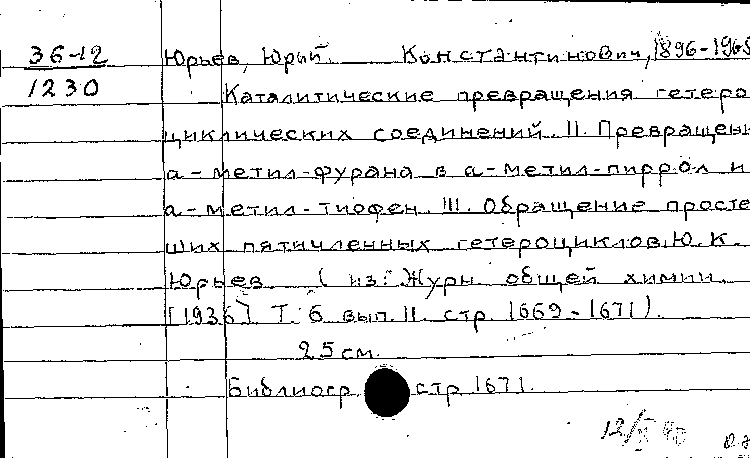 36-12 Юрьев, Юрий Константинович, 1896-1965
1230 Каталитические превращения гетеро
циклических соединений. II. Превращени
α-метил-фурана в α-метил-пиррол и
α-метил-тиофен. III. Обращение просте
ших пятичленных гетероциклов. Ю. К.
Юрьев (из: Журн. общей химии.
[1936] Т. 6 вып. 11. стр. 1669-1671).
25 см.
Библиогр. стр 1671.